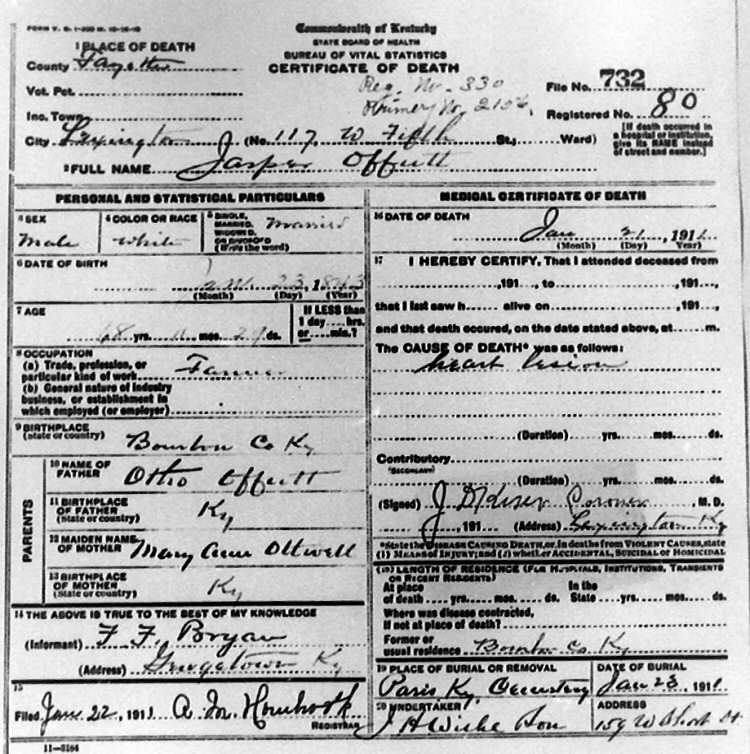 Commonwealth of Kentucky
STATE BOARD OF HEALTH
BUREAU OF VITAL STATISTICS
CERTIFICATE OF DEATH
1 PLACE OF DEATH
County Fayette
Vot. Pct.
Inc. Town
City Lexington (No. 117 W Fifth St., Ward)
Reg. No. 330
Primery No. 2156
File No. 732
Registered No. 80
[If death occurred in
a hospital or institution,
give its NAME instead
of street and number.]
2 FULL NAME Jasper Offutt
PERSONAL AND STATISTICAL PARTICULARS
3 SEX
Male
4 COLOR OR RACE
White
5 SINGLE,
MARRIED,
WIDOWED,
OR DIVORCED
(Write the word)
Married
6 DATE OF BIRTH
23, 1843
(Month) (Day) (Year)
7 AGE
68 yrs. 11 mos. 29 ds.
If LESS than
1 day....hrs.
or....min.?
8 OCCUPATION
(a) Trade, profession, or
particular kind of work Farmer
(b) General nature of industry
business, or establishment in
which employed (or employer)
9 BIRTHPLACE
(State or country) Bourbon Co Ky
PARENTS
10 NAME OF
FATHER Otho Offutt
11 BIRTHPLACE
OF FATHER
(State or country) Ky
12 MAIDEN NAME
OF MOTHER Mary Ann Ottwell
13 BIRTHPLACE
OF MOTHER
(State or country) Ky
14 THE ABOVE IS TRUE TO THE BEST OF MY KNOWLEDGE
(Informant) F. F. Bryan
(Address) Georgetown Ky
15
Filed Jan 22, 1911 A. M. Hornbrook
REGISTRAR
11-3164
MEDICAL CERTIFICATE OF DEATH
16 DATE OF DEATH
Jan 21, 1911
(Month) (Day) (Year)
17 I HEREBY CERTIFY, That I attended deceased from
, 191 , to , 191 ,
that I last saw h alive on , 191 ,
and that death occured, on the date stated above, at m.
The CAUSE OF DEATH* was as follows:
heart lesion
(Duration) yrs. mos. ds.
Contributory
(SECONDARY)
(Duration) yrs. mos. ds.
(Signed) J D Kiser Coroner M. D.
, 191 (Address) Lexington Ky
*State the DISEASE CAUSING DEATH, or, in deaths from VIOLENT CAUSES, state
(1) MEANS OF INJURY; and (2) whether ACCIDENTAL, SUICIDAL or HOMICIDAL
(18) LENGTH OF RESIDENCE (FOR HOSPITALS, INSTITUTIONS, TRANSIENTS
OR RECENT RESIDENTS)
At place In the
of death yrs. mos. ds. State yrs. mos. ds.
Where was disease contracted,
if not at place of death?
Former or
usual residence Bourbon Co Ky
19 PLACE OF BURIAL OR REMOVAL
Paris Ky. Cemetery
DATE OF BURIAL
Jan 23, 1911
20 UNDERTAKER
ADDRESS
159 W Short St